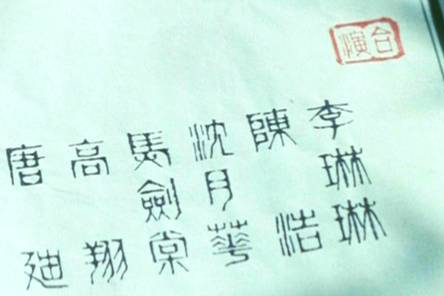 合演
李琳琳
陳浩
沈月華
馬劍棠
高翔
唐迪